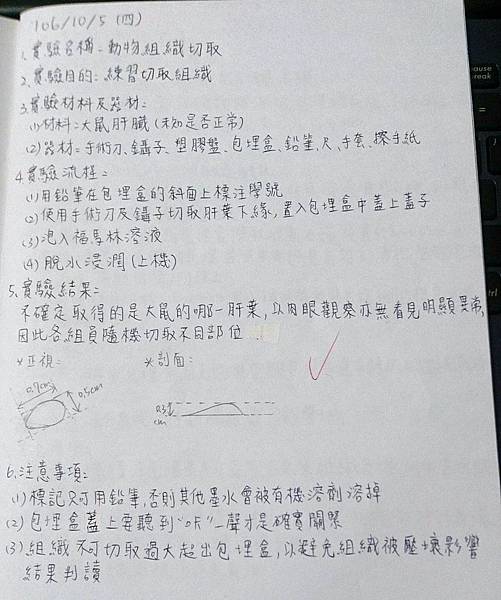 106/10/5 (四)
1.實驗名稱-動物組織切取
2.實驗目的:練習切取組織
3.實驗材料及器材:
(1)材料:大鼠肝臟(未知是否正常)
(2)器材:手術刀、鑷子、塑膠盤、包埋盒、鉛筆、尺、手套、擦手紙
4.實驗流程:
(1)用鉛筆在包埋盒的斜面上標注學號
(2)使用手術刀及鑷子切取肝葉下緣,置入包埋盒中蓋上蓋子
(3)泡入福馬林溶液
(4)脫水浸潤(上機)
5.實驗結果:
不確定取得的是大鼠的哪一肝葉,以肉眼觀察亦無看見明顯異常,
因此各組員隨機切取不同部位
*正視: *剖面:
0.9cm 0.5cm
0.3
cm
6.注意事項:
(1)標記只可用鉛筆,否則其他墨水會被有機溶劑溶掉
(2)包埋盒蓋上要聽到"喀"一聲才是確實關緊
(3)組織不可切取過大超出包埋盒,以避免組織被壓壞影響
結果判讀